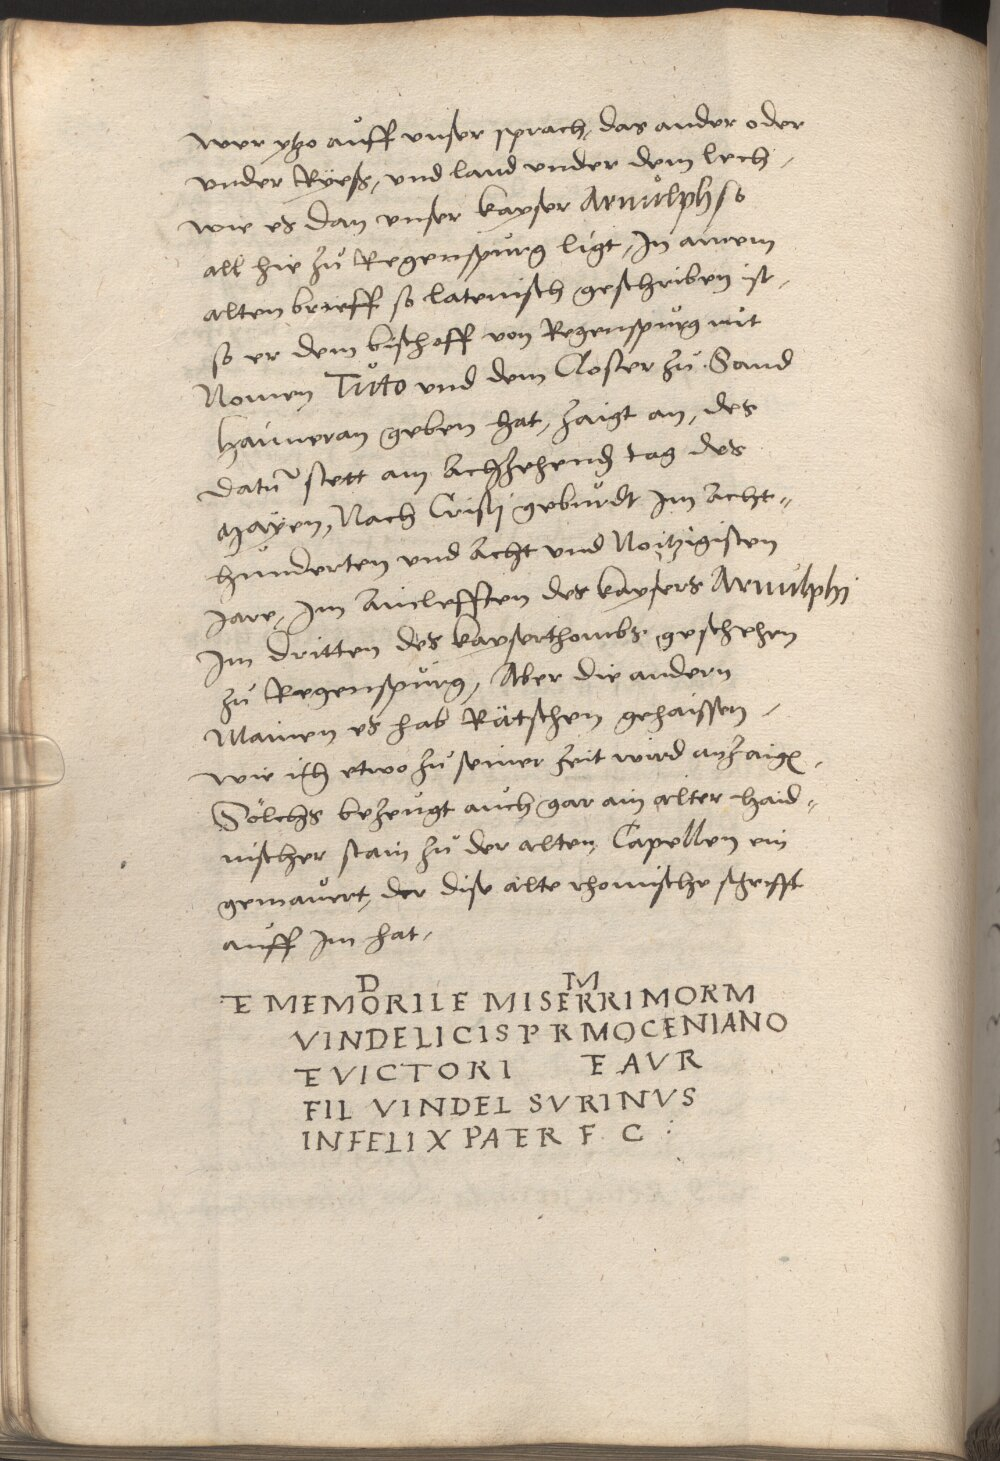 wer ytzo auff unser sprach, das ander oder
under Ryeß, und land under dem lech,
wie es dan unser kayser Arnulph so
all hie zů Regenspurg ligt, In ainem
alten brieff so lateinisch geschriben ist,
so er dem bischoff von Regenspurg mit
Nomen Tuto und dem Closter zů Sand
Haimeran geben hat, zaigt an, des
datũ stett am Achzehend tag des
Mayen, Nach Cristj geburdt Im Acht-
hunderten und Acht und Noitzigisten
Jare, Im Ainlefften des kaysers Arnulphi
Im dritten des kayserthombs geschehen
zů Regenspurg, Aber die andern
Mainen es hab Rätschen gehaissen,
wie ich etwo zů seiner zeit wird anzaigen,
Sölchs bezeugt auch gar ain alter haid-
nischer stain zů der alten Capellen ein
gemauert, der dise alte rhomische schrifft
auff Im hat,
D M
E MEMORILE MISERRIMORM
VINDELICIS P R MOCENIANO
E VICTORI E AVR
FIL VINDEL SVRINVS
INFELIX PAER F C :